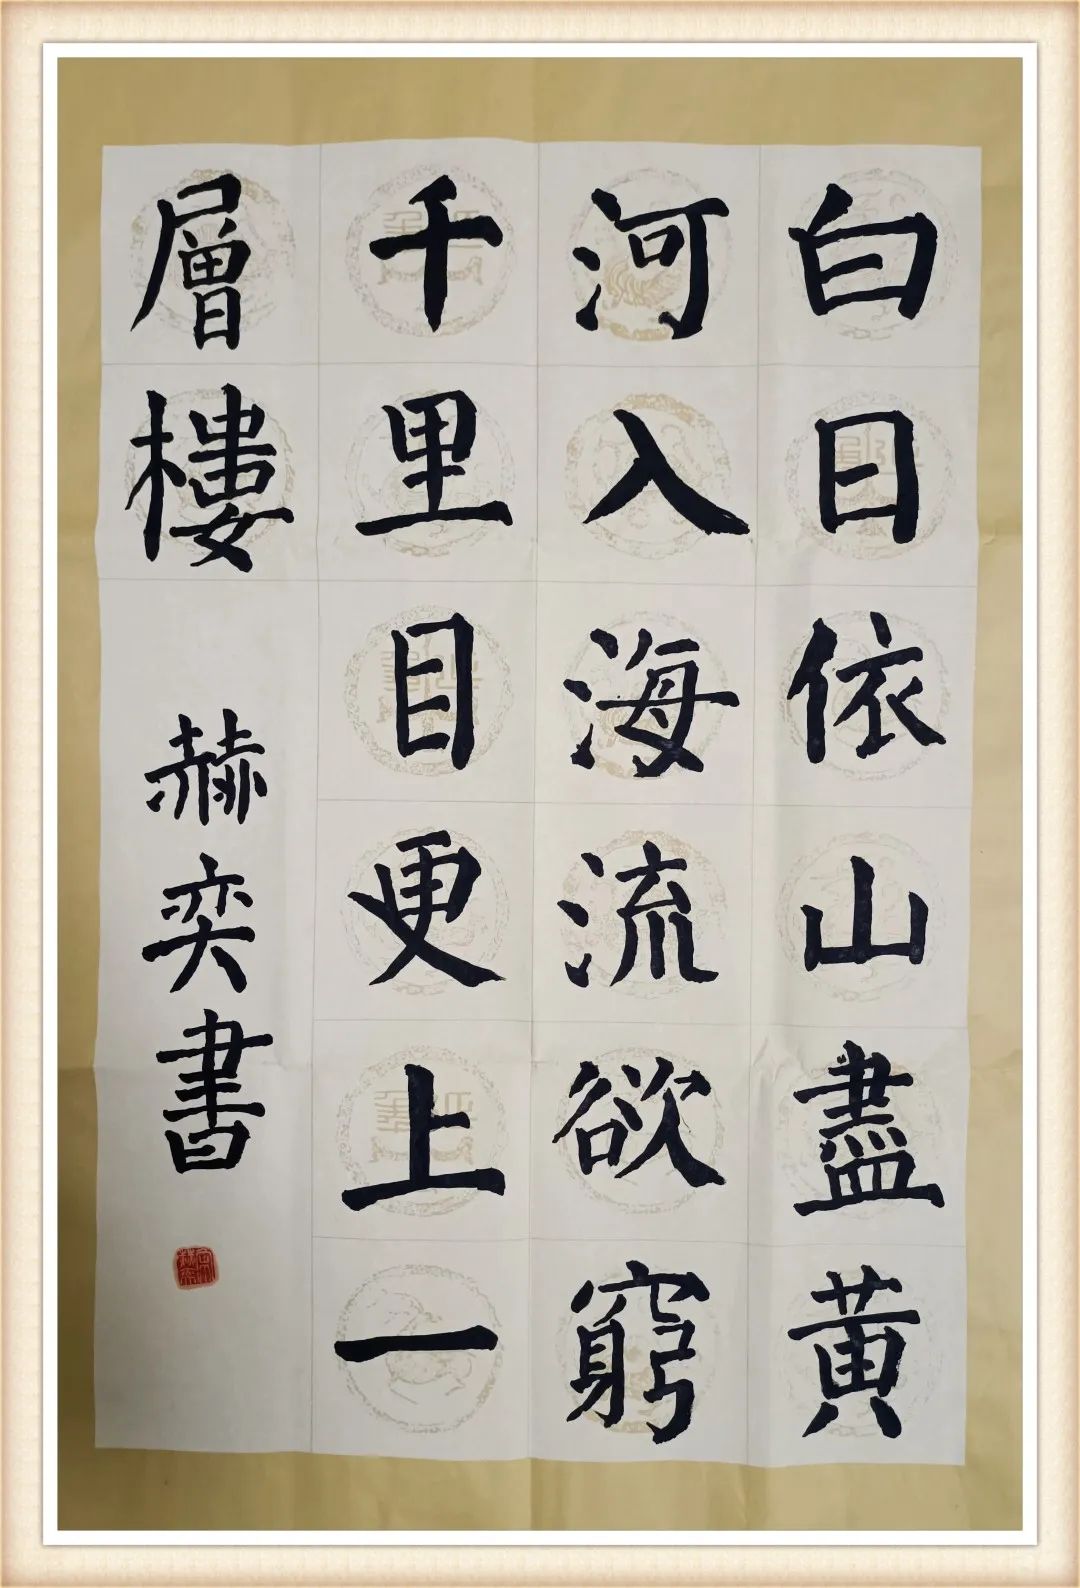 白日依山盡黃
河入海流欲窮
千里目更上一
層樓
赫奕書